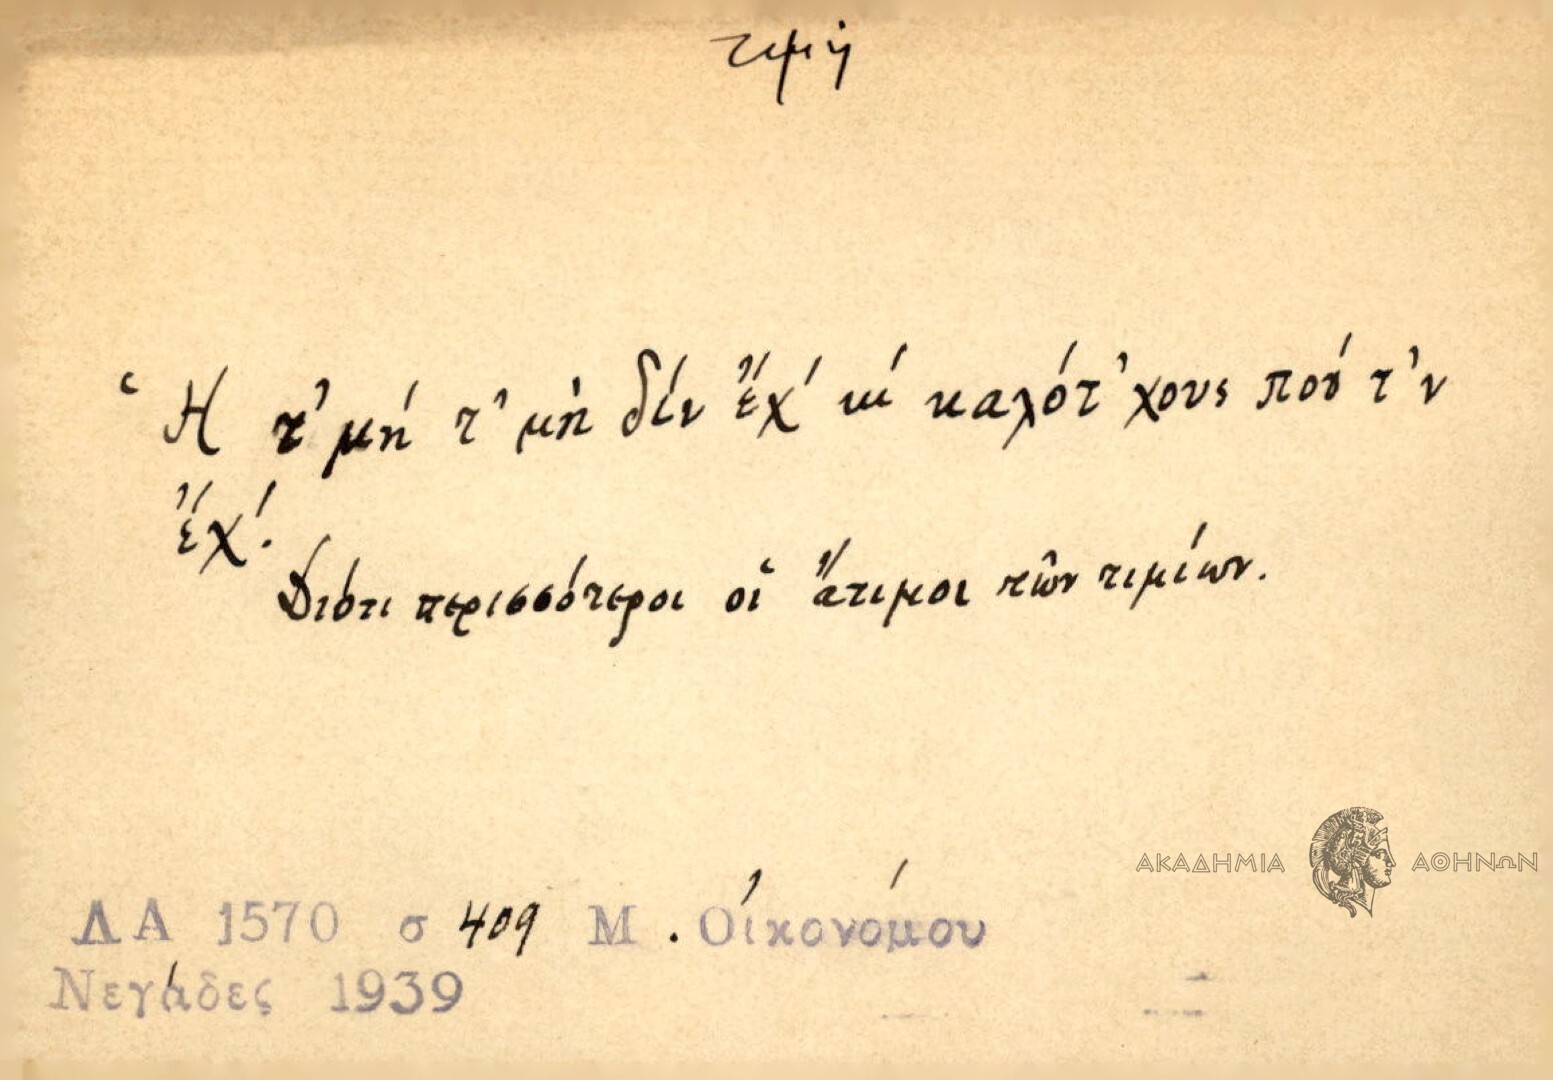 τιμή
Ἡ τ' μή τ' μὴ δέν ἔχ' κί καλότ'χους πού τ'ν
ἔχ'.
Διότι περισσότεροι οἱ ἄτιμοι τῶν τιμίων.
ΑΚΑΔΗΜΙΑ ΑΘΗΝΩΝ
ΛΑ 1570 σ 409 Μ. Οἰκονόμου
Νεγάδες 1939